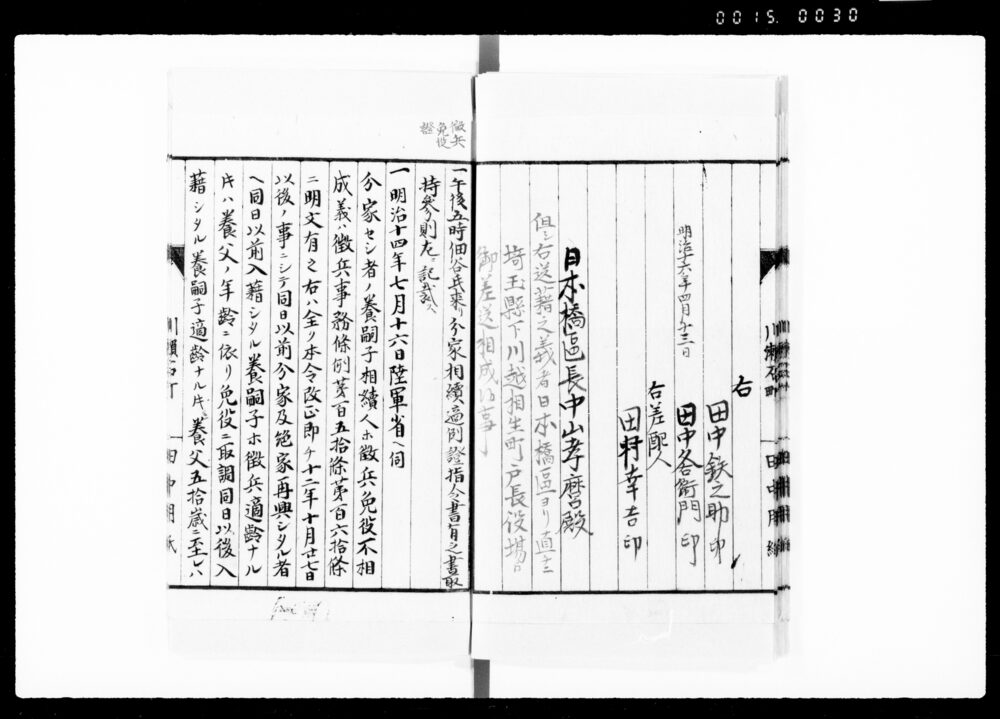 0015. 0030
右
田中鉄之助 印
田中各衛門 印
右差配人
田村幸吉 印
明治十六年四月十三日
日本橋區長中山孝麿殿
但シ右送藉之義者日本橋區ヨリ直ニ
埼玉縣下川越相生町戸長役場ニ
御差送相成候事
徴兵
免役
證
一午後五時佃谷兵来リ分家相續過例證指令書有之書取
持参則左ニ記載ス
一明治十四年七月十六日陸軍省ヘ伺
分家セシ者ノ養嗣子相續人ホ徴兵免役不相
成義ハ徴兵事務條例第百五拾條第百六拾條
ニ明文有之右ハ全ク本令改正即チ十二年十月廿七日
以後ノ事ニシテ同日以前分家及絶家再興シタル者
ヘ同日以前入藉シタル養嗣子ホ徴兵適齢ナル
片ハ養父ノ年齢ニ依リ免役ニ取調同日以後入
藉シタル養嗣子適齢ナル片ハ養父五拾歳ニ至レハ
川瀬石町
田中用紙